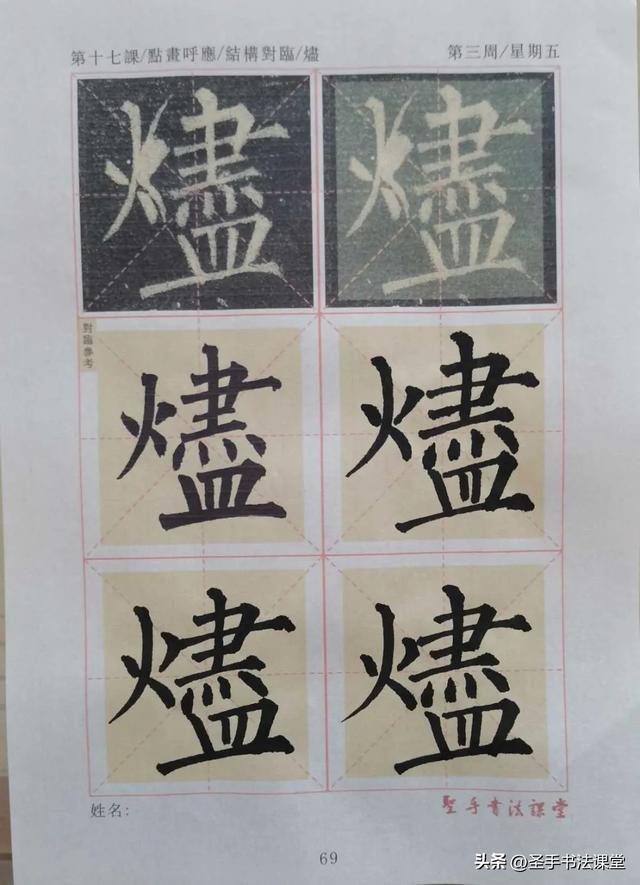 第十七課/點畫呼應/結構對臨/燼
第三周/星期五
燼 燼
對臨參考
燼 燼
燼 燼
姓名:
聖手書法課堂
69
头条 @圣手书法课堂